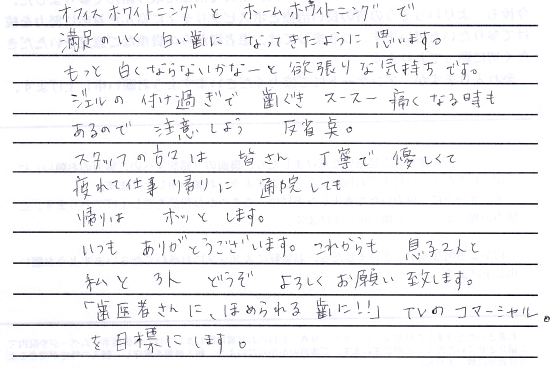 オフィスホワイトニングと ホームホワイトニングで
満足のいく 白い歯に なってきたように 思います。
もっと 白くならないかなーと 欲張りな気持ちです。
ジェルの 付け過ぎで 歯ぐき スースー 痛くなる時も
あるので 注意しよう 反省点。
スタッフの方々は 皆さん 丁寧で 優しくて
疲れて仕事帰りに 通院しても
帰りは ホッと します。
いつも ありがとうございます。これからも 息子2人と
私と 3人 どうぞ よろしく お願い 致します。
「歯医者さんに、ほめられる 歯に!!」 TVの コマーシャル。
を目標にします。